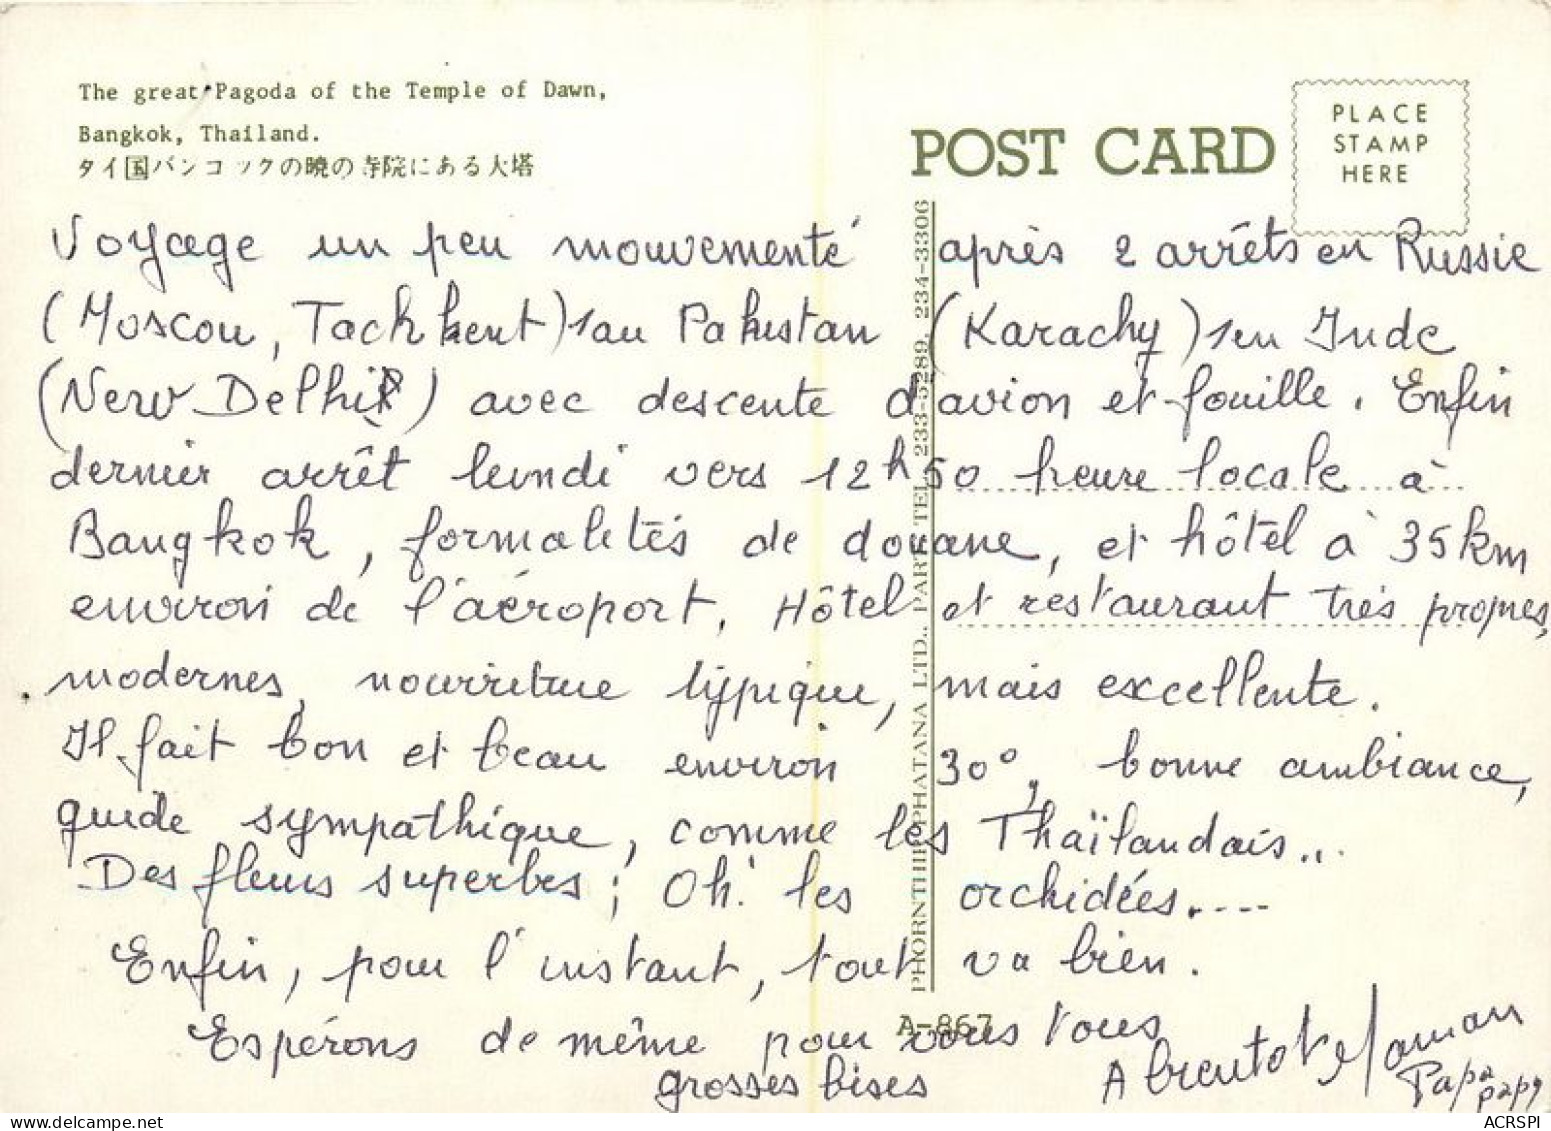 The great Pagoda of the Temple of Dawn,
Bangkok, Thailand.
タイ国バンコックの暁の寺院にある大塔
POST CARD
PLACE
STAMP
HERE
PHORNTHIP PHATANA LTD., PART TEL. 233-5289, 234-3306
Voyage un peu mouvementé après 2 arrêts en Russie
(Moscou, Tachkent) 1 au Pakistan (Karachy) 1 en Inde
(New Delhi) avec descente d'avion et fouille. Enfin
dernier arrêt lundi vers 12h50 heure locale à
Bangkok, formalités de douane, et hôtel à 35 km
environ de l'aéroport. Hôtel et restaurant très propres,
modernes, nourriture typique, mais excellente.
Il fait bon et beau environ 30°, bonne ambiance,
guide sympathique, comme les Thaïlandais...
Des fleurs superbes; Oh! les orchidées....
Enfin, pour l'instant, tout va bien.
Espérons de même pour vous tous
grosses bises
A-867
A bientot Maman
Papa
papy
ACRSPI